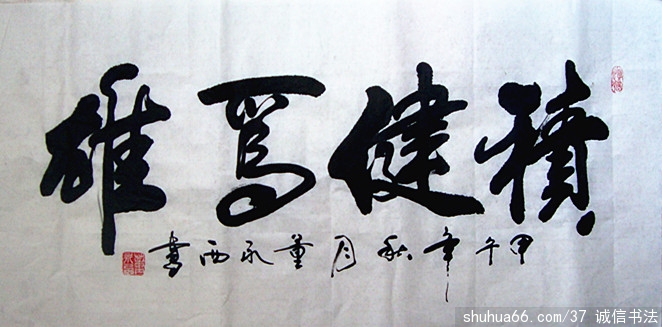 積健為雄
甲午年秋月董永西書
shuhua66.com/37 诚信书法